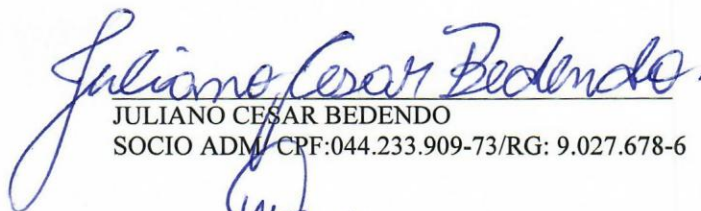 Juliano Cesar Bedendo
JULIANO CESAR BEDENDO
SOCIO ADM/ CPF:044.233.909-73/RG: 9.027.678-6